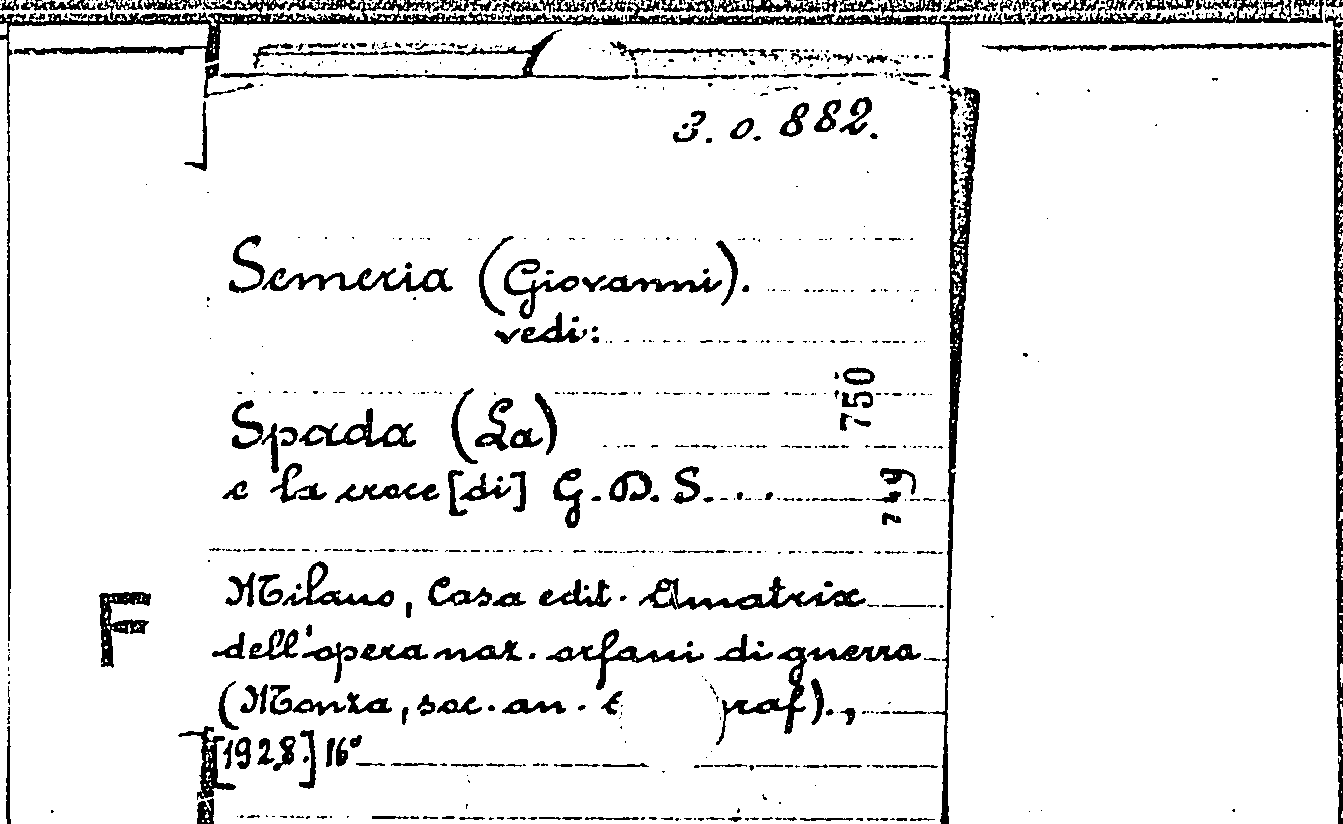 3. o. 882.
Semeria (Giovanni).
vedi:
Spada (La)
750
e la croce [di] G. D. S. . .
749
F
Milano, Casa edit. Amatrix
dell'opera naz. orfani di guerra
(Monza, soc. an. t raf).,
[1928.] 16°